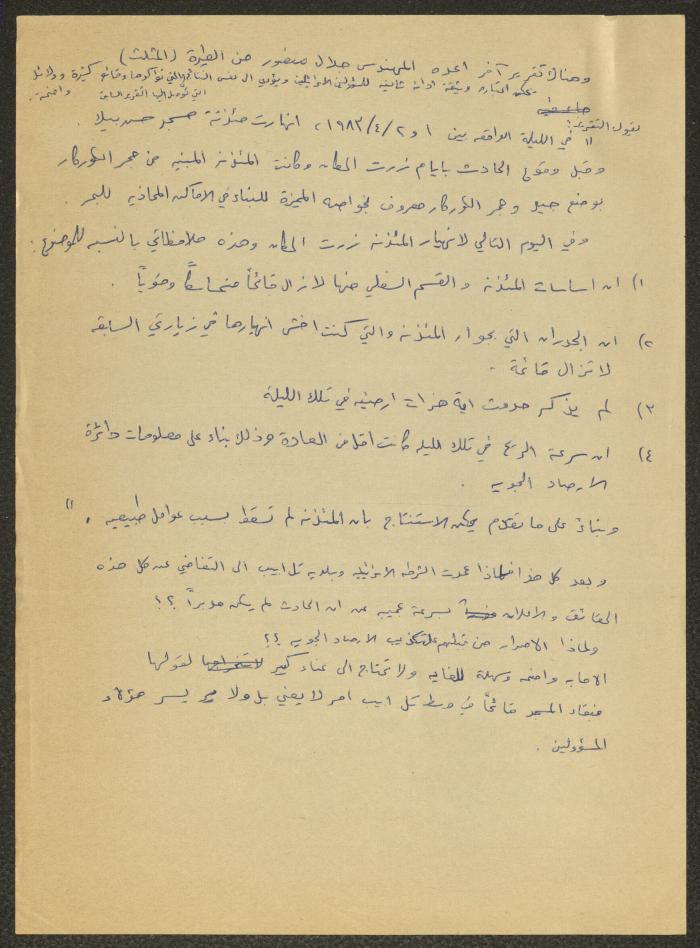 وهناك تقرير آخر اعده المهندس جلال منصور من الطيرة (المثلث)
يمكن اعتباره وثيقة ادانة ثانية للمسؤولين الاسرائيليين ويؤدي الى نفس النتائج التي تؤكدها وقائع كثيرة ودلائل واضحة.
التي توصل اليها التقرير السابق
يقول التقرير:
" في الليلة الواقعه بين ١ و ٢/٤/١٩٨٣، انهارت مئذنة مسجد حسن بيك.
وقبل وقوع الحادث بايام زرت المكان وكانت المئذنة المبنيه من حجر الكوركار
بوضع جيد وحجر الكوركار معروف بخواصه المميزة للبناء في الاماكن المحاذيه للبحر.
وفي اليوم التالي لانهيار المئذنه زرت المكان وهذه ملاحظاتي بالنسبه للموضوع:
١) ان اساسات المئذنه والقسم السفلي منها لا زال قائماً متماسكاً وقوياً.
٢) ان الجدران التي بجوار المئذنه والتي كنت اخشى انهيارها في زيارتي السابقه
لا تزال قائمة.
٣) لم يذكر حدوث اية هزات ارضيه في تلك الليلة
٤) ان سرعة الريح في تلك الليله كانت اقل من العادة وذلك بناء على معلومات دائرة
الارصاد الجويه.
وبناءً على ما تقدم يمكن الاستنتاج بان المئذنه لم تسقط بسبب عوامل طبيعيه. "
وبعد كل هذا فلماذا عمدت الشرطه الاسرائيليه وبلديه تل ابيب الى التغاضي عن كل هذه
الحقائق والاعلان بسرعة عجيبه عن ان الحادث لم يكن مدبراً؟!
ولماذا الاصرار من قبلهم على تكذيب الارصاد الجويه؟؟
الاجابه واضحه وسهلة للغايه ولا تحتاج الى عناء كبير لقولها
فبقاء المسجد قائماً في وسط تل ابيب امر لا يعني بل ولا يسر هؤلاء
المسؤولين.